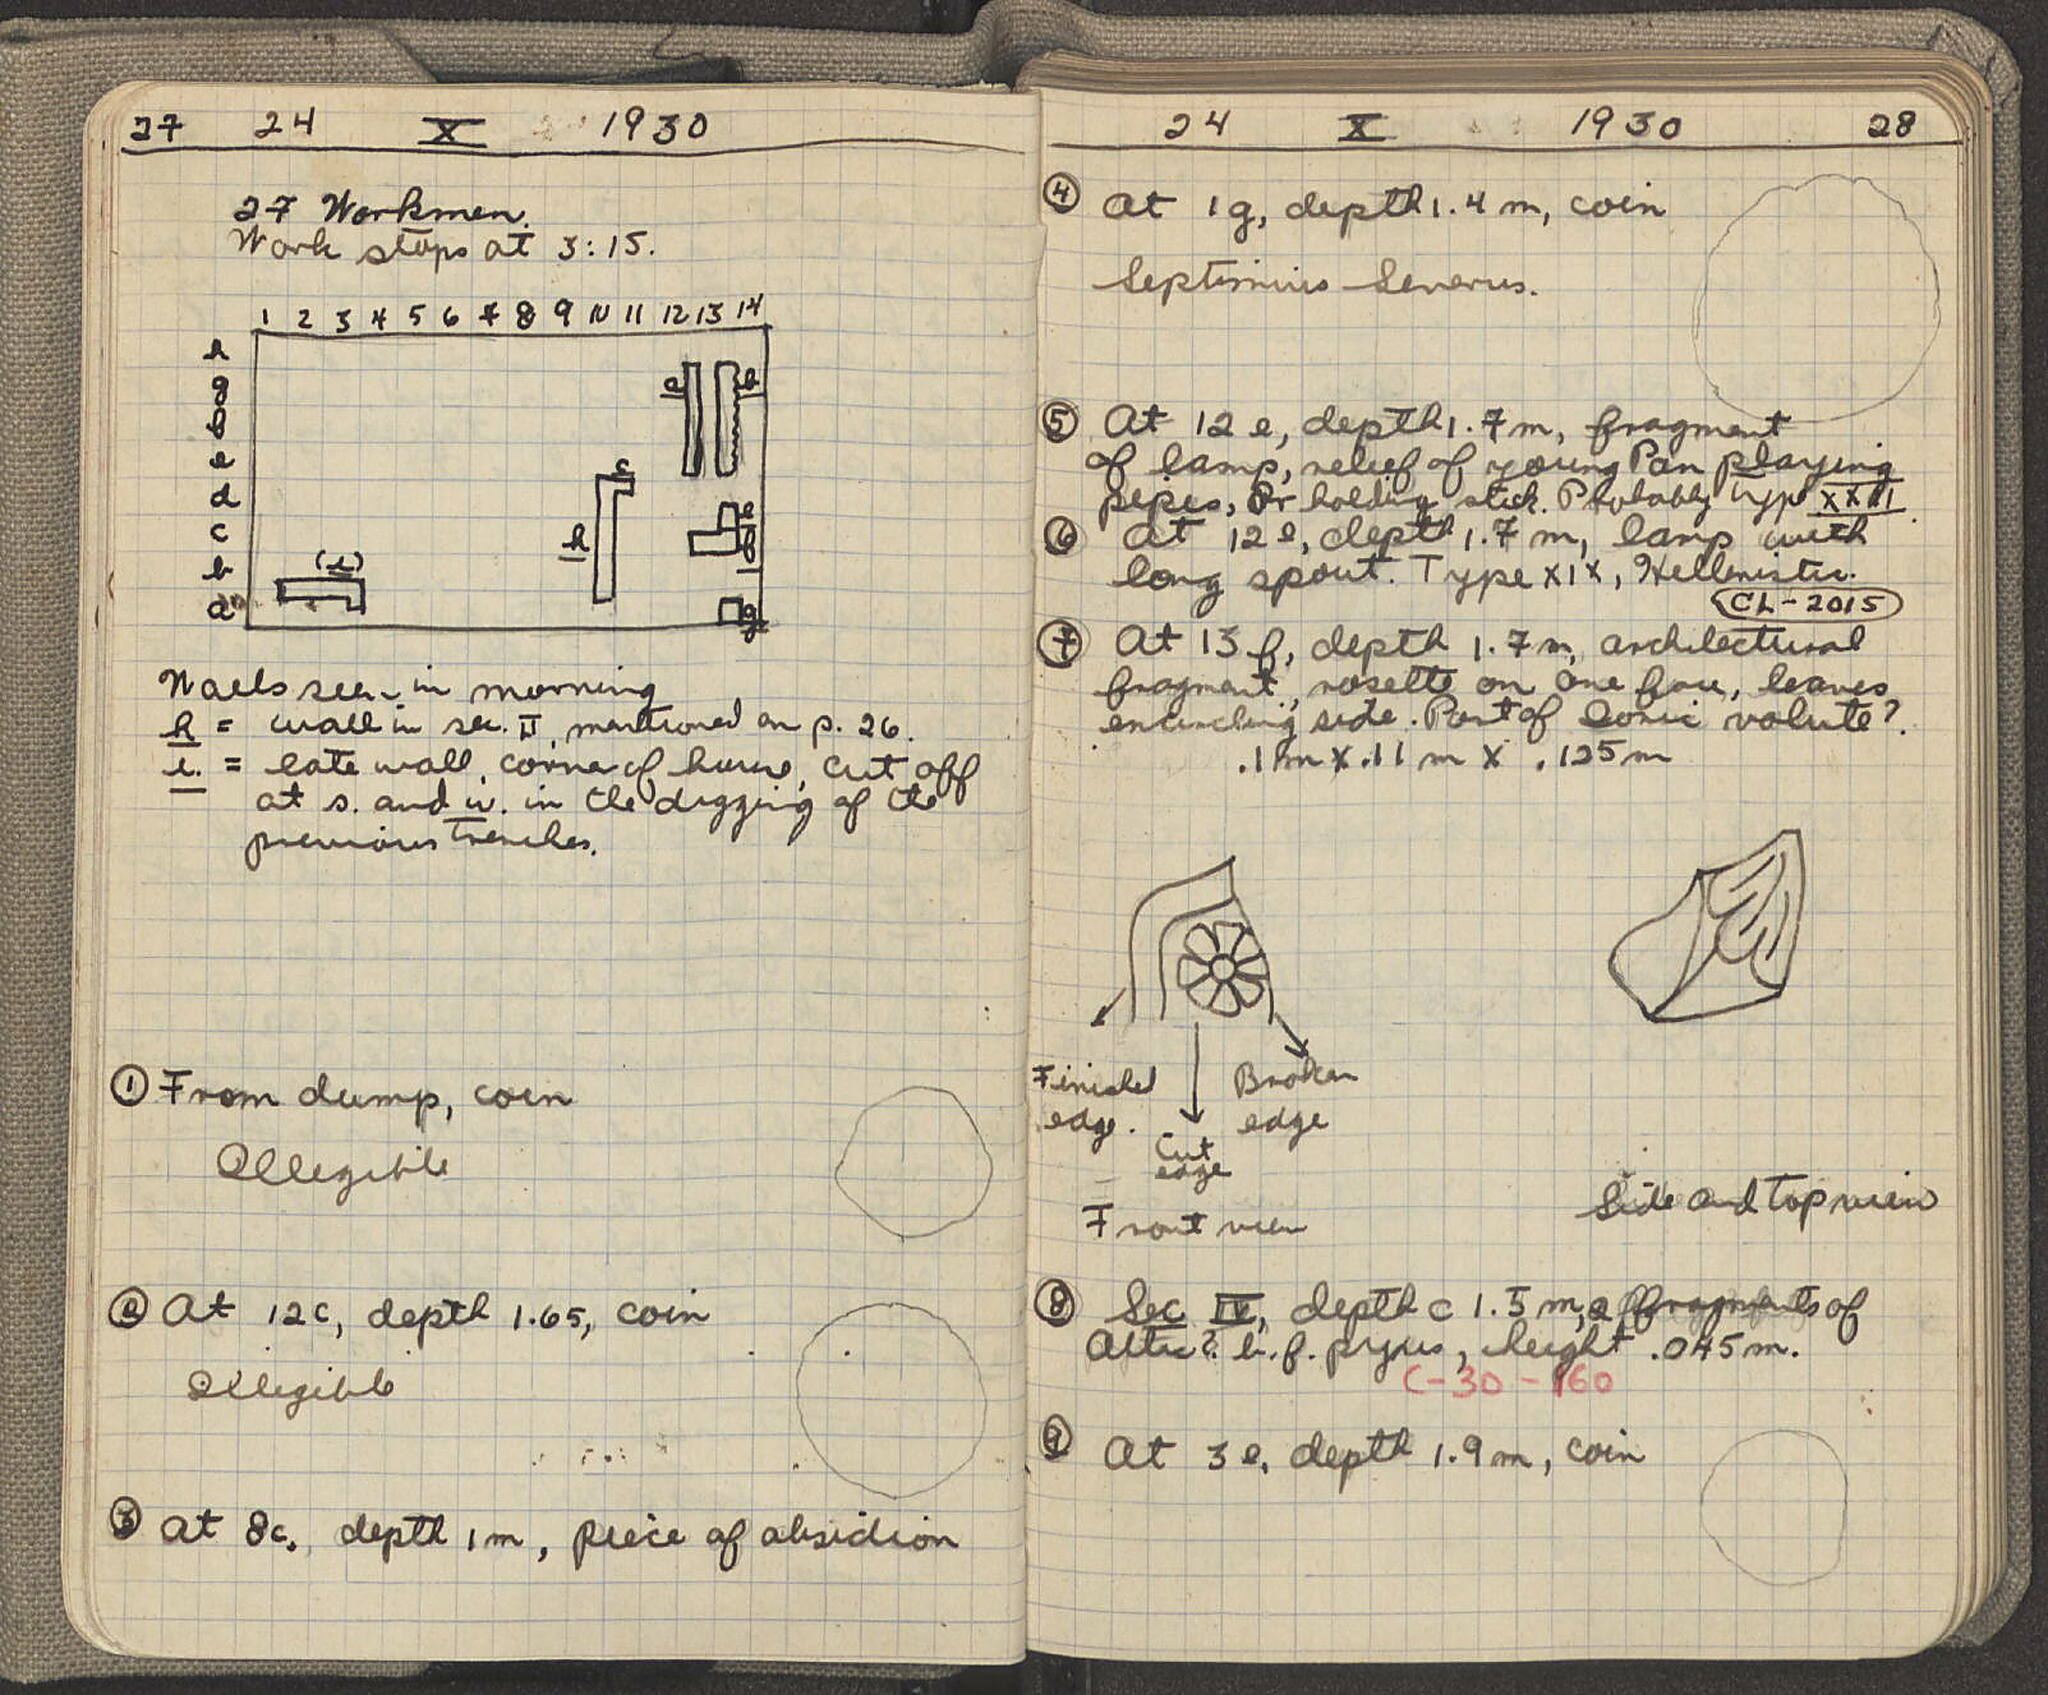 27 24 X 1930
27 Workmen.
Work stops at 3:15.
1 2 3 4 5 6 7 8 9 10 11 12 13 14
h
g
f
e
d
c
b
a
a
b
c
e
f
h
(i)
g
Walls seen in morning
h = wall in sec. II, mentioned on p. 26.
i. = late wall, corner of house, cut off
at s. and w. in the digging of the
previous trenches.
① From dump, coin
Illegible
② At 12c, depth 1.65, coin
Illegible
③ At 8c, depth 1 m, piece of obsidion
24 X 1930 28
④ At 1g, depth 1.4 m, coin
Septimius Severus.
⑤ At 12 e, depth 1.7 m, fragment
of lamp, relief of young Pan playing
pipes, or holding stick. Probably Type XXIII
⑥ At 12 e, depth 1.7 m, lamp with
long spout. Type XIX, Hellenistic.
CL-2015
⑦ At 13 f, depth 1.7 m, architectural
fragment, rosette on one face, leaves
encircling side. Part of Ionic volute?
.1 m x .11 m x .125 m
Finished edge.
Cut edge
Broken edge
Front view
Side and top view
⑧ Sec IV, depth c 1.5 m, a fragments of
Attic? b.f. pyxis, height .045 m.
C-30-160
⑨ At 3 e, depth 1.9 m, coin